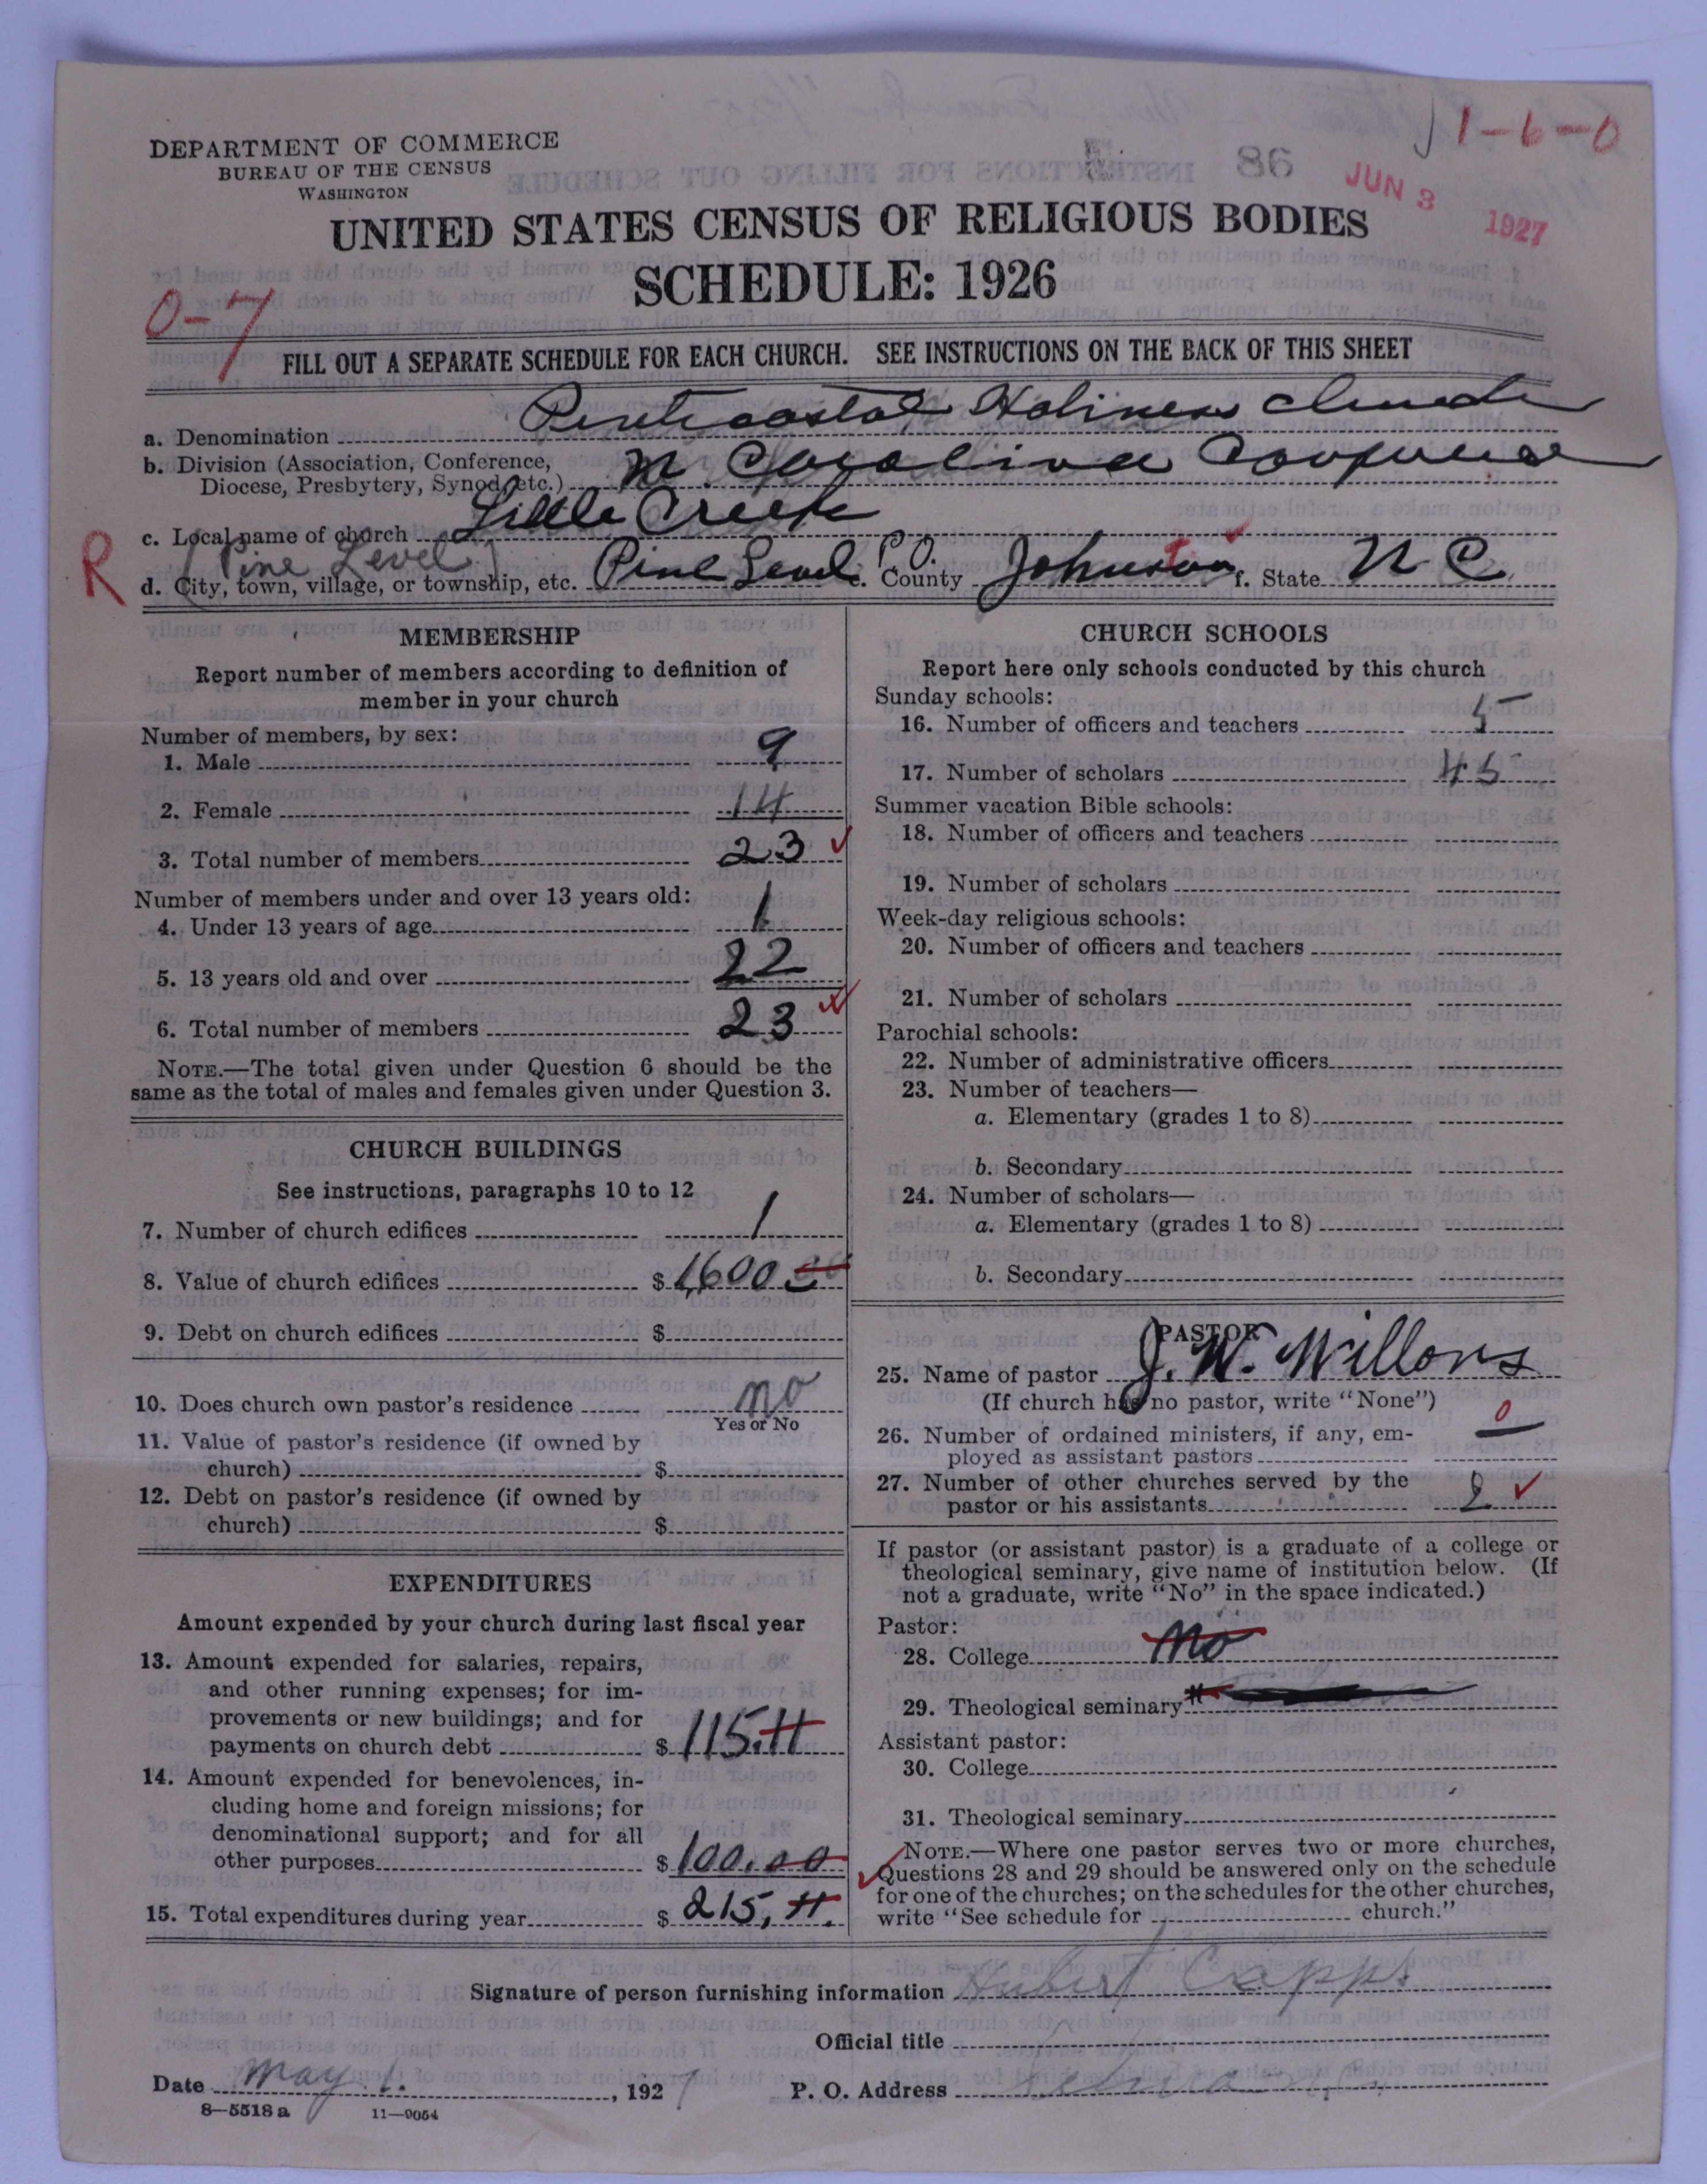 1-6-0
DEPARTMENT OF COMMERCE
BUREAU OF THE CENSUS
WASHINGTON
86
JUN 3 1927
UNITED STATES CENSUS OF RELIGIOUS BODIES
SCHEDULE: 1926
0-7
FILL OUT A SEPARATE SCHEDULE FOR EACH CHURCH. SEE INSTRUCTIONS ON THE BACK OF THIS SHEET
a. Denomination Pentecostal Holiness Church
b. Division (Association, Conference, Diocese, Presbytery, Synod, etc.) N. Carolina Conference
c. Local name of church Little Creek
(Pine Level)
R
d. City, town, village, or township, etc. Pine Level P.O. e. County Johnston f. State N C
MEMBERSHIP
Report number of members according to definition of
member in your church
Number of members, by sex:
1. Male 9
2. Female 14
3. Total number of members 23
Number of members under and over 13 years old:
4. Under 13 years of age 1
5. 13 years old and over 22
6. Total number of members 23
NOTE.—The total given under Question 6 should be the
same as the total of males and females given under Question 3.
CHURCH BUILDINGS
See instructions, paragraphs 10 to 12
7. Number of church edifices 1
8. Value of church edifices $1600 00
9. Debt on church edifices $
10. Does church own pastor's residence no
Yes or No
11. Value of pastor's residence (if owned by
church) $
12. Debt on pastor's residence (if owned by
church) $
EXPENDITURES
Amount expended by your church during last fiscal year
13. Amount expended for salaries, repairs,
and other running expenses; for im-
provements or new buildings; and for
payments on church debt $115.11
14. Amount expended for benevolences, in-
cluding home and foreign missions; for
denominational support; and for all
other purposes $100.00
15. Total expenditures during year $215.11.
CHURCH SCHOOLS
Report here only schools conducted by this church
Sunday schools:
16. Number of officers and teachers 5
17. Number of scholars 45
Summer vacation Bible schools:
18. Number of officers and teachers
19. Number of scholars
Week-day religious schools:
20. Number of officers and teachers
21. Number of scholars
Parochial schools:
22. Number of administrative officers
23. Number of teachers—
a. Elementary (grades 1 to 8)
b. Secondary
24. Number of scholars—
a. Elementary (grades 1 to 8)
b. Secondary
PASTOR
25. Name of pastor J. W. Willons
(If church has no pastor, write "None")
26. Number of ordained ministers, if any, em-
ployed as assistant pastors 0
27. Number of other churches served by the
pastor or his assistants 2
If pastor (or assistant pastor) is a graduate of a college or
theological seminary, give name of institution below. (If
not a graduate, write "No" in the space indicated.)
Pastor:
28. College No
29. Theological seminary "
Assistant pastor:
30. College
31. Theological seminary
NOTE.—Where one pastor serves two or more churches,
Questions 28 and 29 should be answered only on the schedule
for one of the churches; on the schedules for the other churches,
write "See schedule for church."
Signature of person furnishing information Hubert Capps
Official title
Date May 1. , 1927 P. O. Address
8—5518 a 11—9054